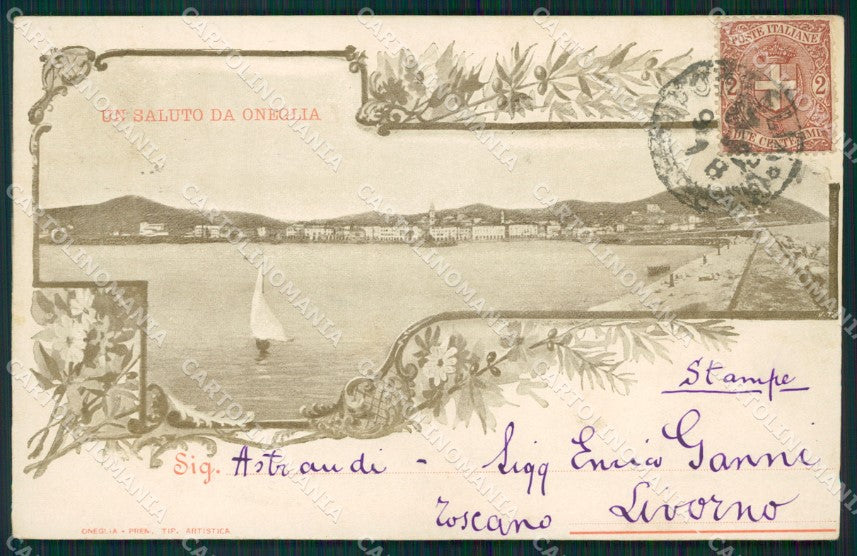 UN SALUTO DA ONEGLIA
POSTE ITALIANE
2 2
DUE CENTESIMI
Stampe
Sig. Astraudi - Sigg Enrico Ganni
Toscano Livorno
ONEGLIA - PREM. TIP. ARTISTICA
CARTOLINOMANIA